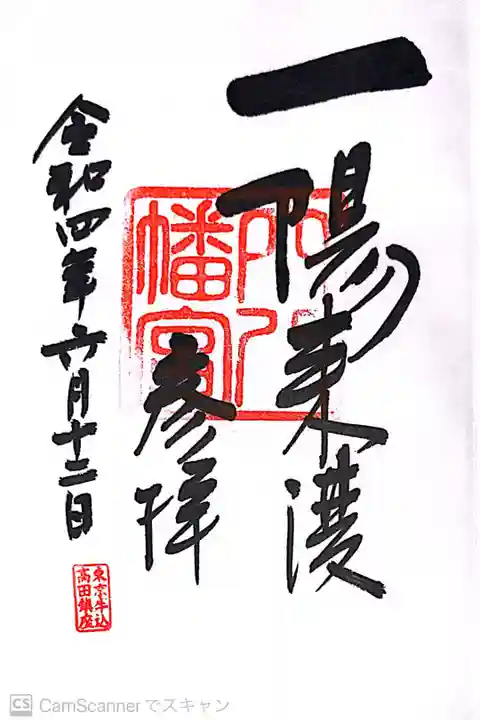 一陽来復
穴八
幡宮
参拝
令和四年六月十二日
東京牛込
高田鎮座
CS CamScanner でスキャン